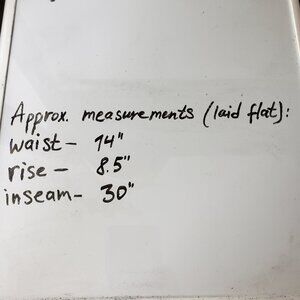 Approx. measurements (laid flat):
waist – 14"
rise – 8.5"
inseam – 30"